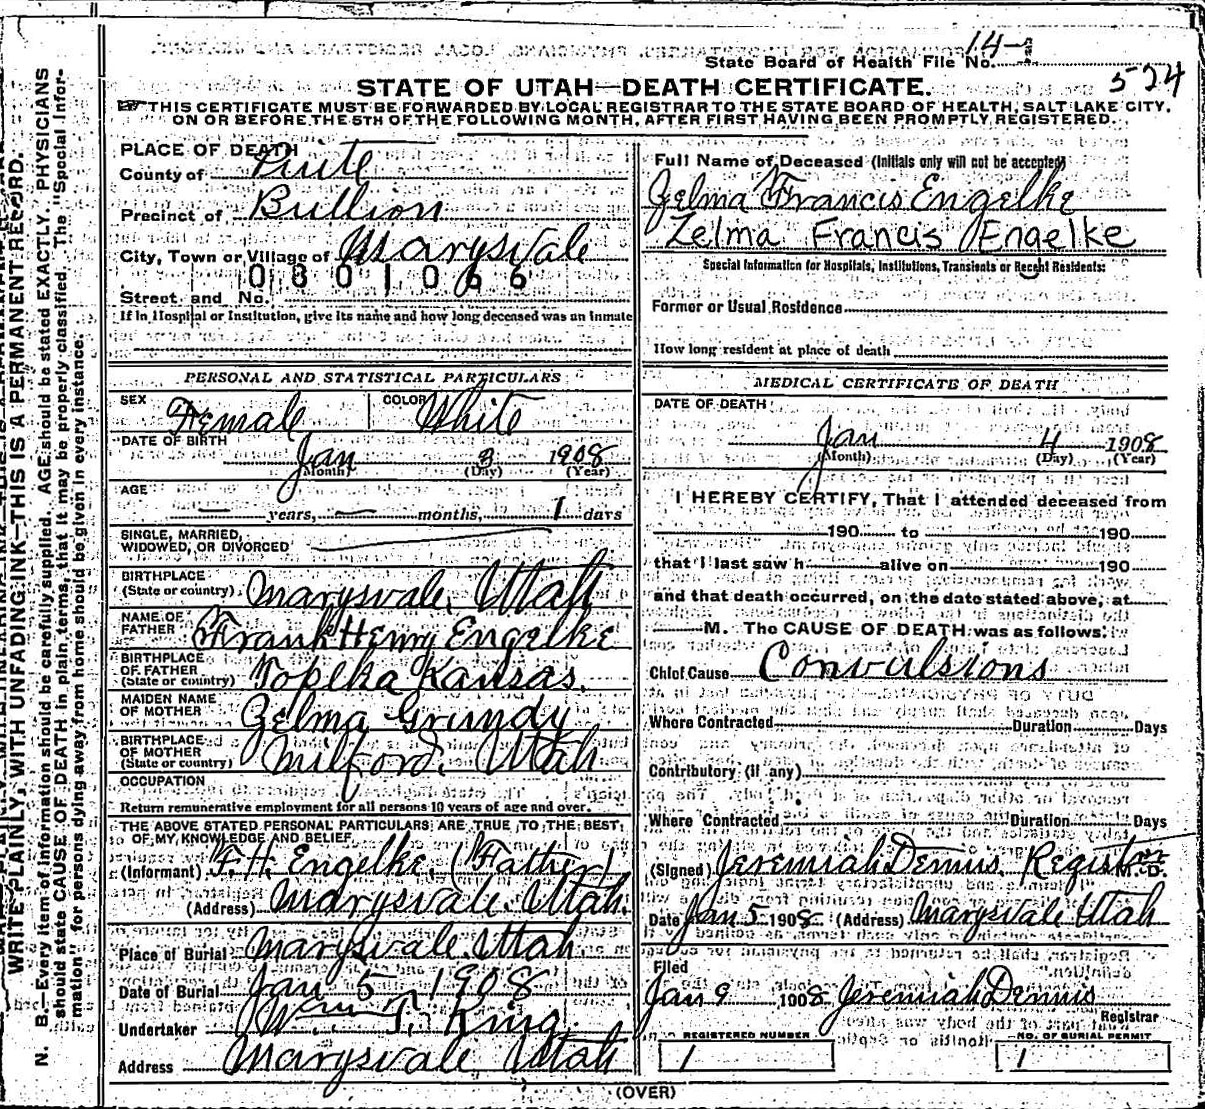 14-
State Board of Health File No.
524
STATE OF UTAH—DEATH CERTIFICATE.
THIS CERTIFICATE MUST BE FORWARDED BY LOCAL REGISTRAR TO THE STATE BOARD OF HEALTH, SALT LAKE CITY,
ON OR BEFORE THE 5TH OF THE FOLLOWING MONTH, AFTER FIRST HAVING BEEN PROMPTLY REGISTERED.
WRITE PLAINLY, WITH UNFADING INK—THIS IS A PERMANENT RECORD.
N. B.—Every item of information should be carefully supplied. AGE should be stated EXACTLY. PHYSICIANS
should state CAUSE OF DEATH in plain terms, that it may be properly classified. The "Special Infor-
mation" for persons dying away from home should be given in every instance.
PLACE OF DEATH
County of Piute
Precinct of Bullion
City, Town or Village of Marysvale
0801066
Street and No.
If in Hospital or Institution, give its name and how long deceased was an inmate
PERSONAL AND STATISTICAL PARTICULARS
SEX Female COLOR White
DATE OF BIRTH Jan 3 1908
(Month) (Day) (Year)
AGE — years, — months, 1 days
SINGLE, MARRIED,
WIDOWED, OR DIVORCED
BIRTHPLACE
(State or country) Marysvale, Utah
NAME OF
FATHER Frank Henry Engelke
BIRTHPLACE
OF FATHER
(State or country) Topeka Kansas.
MAIDEN NAME
OF MOTHER Zelma Grundy
BIRTHPLACE
OF MOTHER
(State or country) Milford, Utah
OCCUPATION
Return remunerative employment for all persons 10 years of age and over.
THE ABOVE STATED PERSONAL PARTICULARS ARE TRUE TO THE BEST
OF MY KNOWLEDGE AND BELIEF
(Informant) F. H. Engelke, (Father)
(Address) Marysvale, Utah.
Place of Burial Marysvale Utah
Date of Burial Jan 5 1908
Undertaker Wm T. King
Address Marysvale, Utah
Full Name of Deceased (Initials only will not be accepted)
Zelma Francis Engelke
Zelma Francis Engelke
Special Information for Hospitals, Institutions, Transients or Recent Residents:
Former or Usual Residence
How long resident at place of death
MEDICAL CERTIFICATE OF DEATH
DATE OF DEATH
Jan 4 1908
(Month) (Day) (Year)
I HEREBY CERTIFY, That I attended deceased from
190 to 190
that I last saw h alive on 190
and that death occurred, on the date stated above, at
M. The CAUSE OF DEATH was as follows:
Chief Cause Convulsions
Where Contracted Duration Days
Contributory (if any)
Where Contracted Duration Days
(Signed) Jeremiah Dennis, Registrar M. D.
Date Jan 5 1908 (Address) Marysvale Utah
Filed
Jan 9 1908 Jeremiah Dennis
Registrar
REGISTERED NUMBER
1
NO. OF BURIAL PERMIT
1
(OVER)